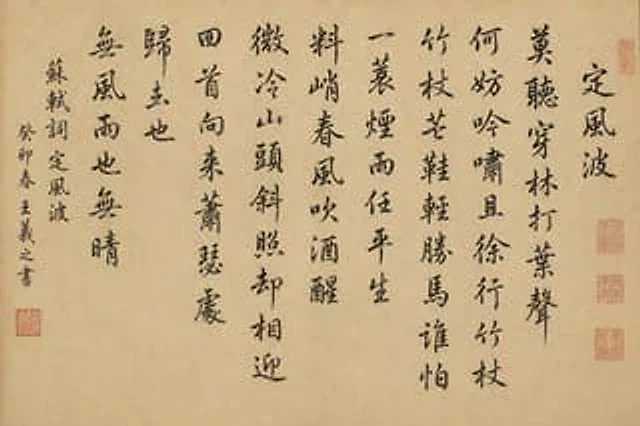 定風波
莫聽穿林打葉聲
何妨吟嘯且徐行竹杖
竹杖芒鞋輕勝馬誰怕
一蓑煙雨任平生
料峭春風吹酒醒
微冷山頭斜照却相迎
回首向来蕭瑟處
歸去也
無風雨也無晴
蘇軾詞定風波
癸卯春王羲之書